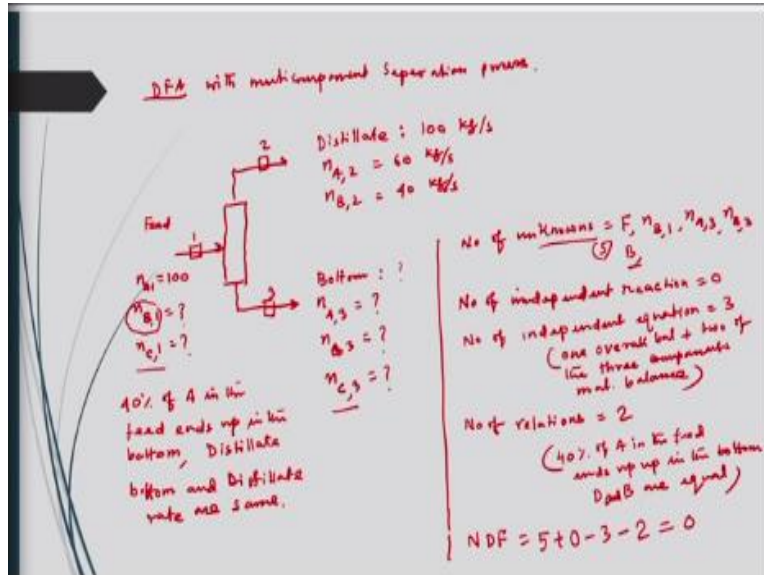 DFA with multicomponent Separation process.
2
Distillate : 100 kg/s
n_A,2 = 60 kg/s
n_B,2 = 40 kg/s
Feed
1
n_A1 = 100
n_B,1 = ?
n_C,1 = ?
3
Bottom : ?
n_A,3 = ?
n_B,3 = ?
n_C,3 = ?
40% of A in the
feed ends up in the
bottom, Distillate
bottom and Distillate
rate are same.
No of unknowns = F, n_B,1, n_A,3, n_B,3
(5) B,
No of independent reaction = 0
No of independent equation = 3
(one overall bal + two of
the three components
mat. balance)
No of relations = 2
(40% of A in the feed
ends up up in the bottom
D and B are equal)
NDF = 5+0-3-2 = 0